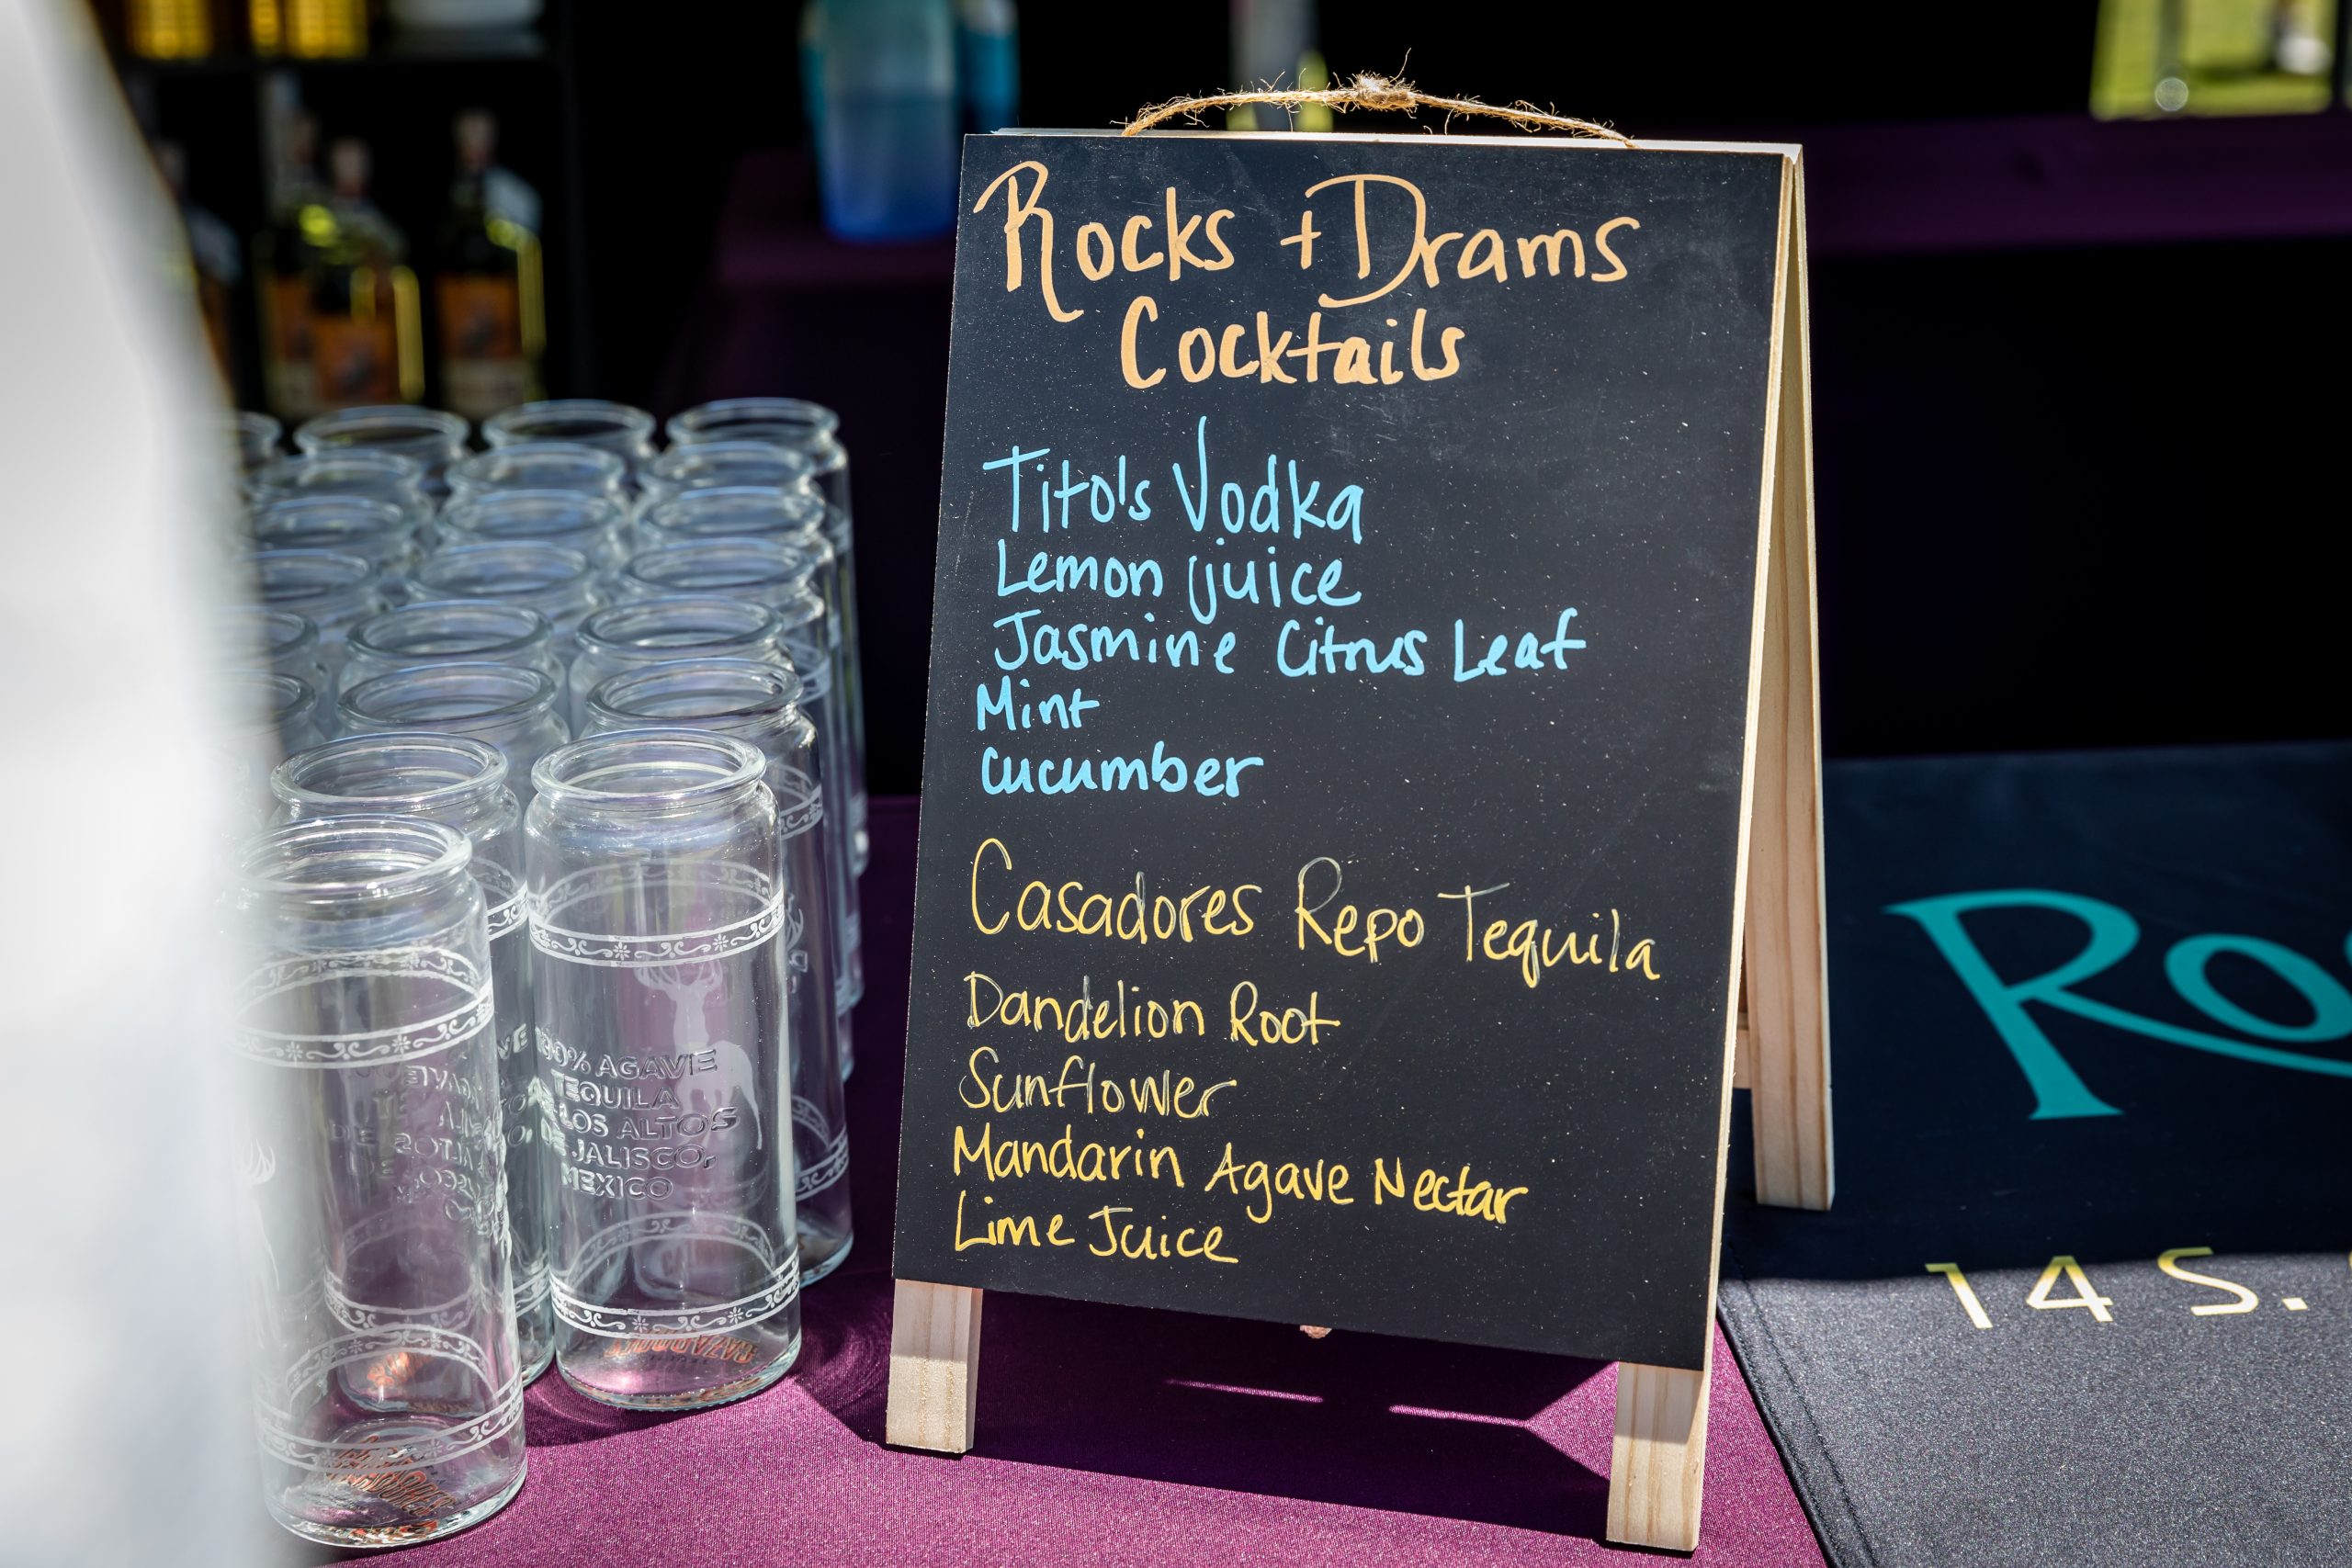 Rocks + Drams
Cocktails
Tito's Vodka
Lemon juice
Jasmine Citrus Leaf
Mint
Cucumber
Casadores Repo Tequila
Dandelion Root
Sunflower
Mandarin Agave Nectar
Lime Juice
100% AGAVE
TEQUILA
DE LOS ALTOS
DE JALISCO,
MEXICO
CAZADORES
Ro
14 S.